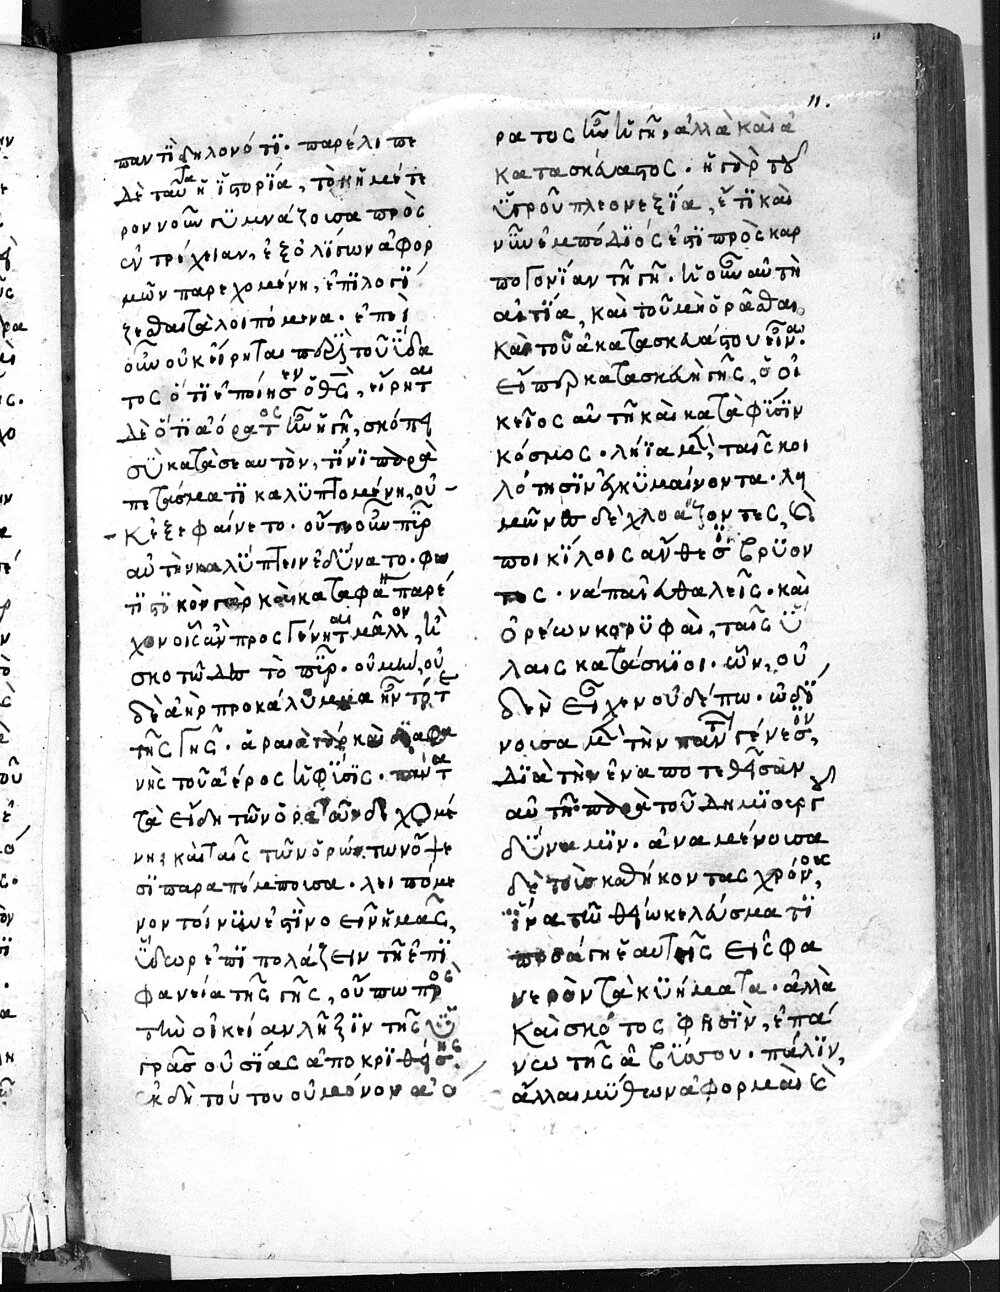 παντὶ δηλονότι· παρέλιπε
δὲ ταῦτα ἡ ἱστορία, τὸν ἡμέτε
ρον νοῦν γυμνάζουσα πρὸς
ἐντρέχειαν, ἐξ ὀλίγων ἀφορ
μῶν παρεχομένη, ἐπιλογί
ζεσθαι τὰ λοιπόμενα· ἐπεὶ
οὖν οὐκ εἴρηται περὶ τοῦ ὕδα
τος ὅτι ἐποίησεν ὁ θς, εἴρηται
δὲ ὅτι ἀόρατος ἦν ἡ γῆ, σκόπει
σὺ κατὰ σεαυτὸν, τίνι παρα
πετάσματι καλυπτομένη, οὐ
κ ἐξεφαίνετο· οὔτε οὖν πῦρ
αὐτὴν καλύπτειν ἐδύνατο· φω
τιστικὸν γὰρ καὶ καταφαν παρέ
χον οἷς ἂν προσγένηται μᾶλλον, ἢ
σκοτῶδες τὸ πῦρ· οὐ μὴν, οὐ
δὲ ἀὴρ προκάλυμμα ἦν τότε
τῆς γῆς· ἀραιὰ γὰρ καὶ διαφα
νὴς τοῦ ἀέρος ἡ φύσις· πάντα
τὰ εἴδη τῶν ὁρατῶν δεχομέ
νη· καὶ ταῖς τῶν ὁρώντων ὄψε
σι παραπέμπουσα· λειπόμε
νον τοίνυν ἐστὶ νοεῖν ἡμᾶς,
ὕδωρ ἐπιπολάζειν τῇ ἐπι
φανεία τῆς γῆς, οὔπω πρὸς
τὴν οἰκείαν λῆξιν τῆς ὑ
γρᾶς οὐσίας ἀποκριθείσης·
ἐκ δὴ τούτου οὐ μόνον ἀό
11.
ρατος ἦν ἡ γῆ, ἀλλὰ καὶ ἀ
κατασκεύαστος· ἡ γὰρ τοῦ
ὑγροῦ πλεονεξία, ἔτι καὶ
νῦν ἐμπόδιός ἐστι πρὸς καρ
πογονίαν τῇ γῇ· ἡ οὖν αὐτὴ
αἰτία, καὶ τοῦ μὴ ὁρᾶσθαι,
καὶ τοῦ ἀκατασκεύαστον εἶναι·
εἴπερ κατασκευὴ γῆς, ὁ οἰ
κεῖος αὐτῆ καὶ κατὰ φύσιν
κόσμος· λήϊα μὲν, ταῖς κοι
λότησιν ἐγκυμαίνοντα· λει
μῶνες δὲ χλοάζοντες, καὶ
ποικίλοις ἄνθεσι βρύον
τες· νάπαι εὐθαλεῖς· καὶ
ὀρέων κορυφαὶ, ταῖς ὕ
λαις κατάσκιοι· ὧν, οὐ
δὲν εἶχεν οὐδέπω· ὠδί
νουσα μὲν τὴν πάντων γένεσιν,
διὰ τὴν ἐναποτεθεῖσαν
αὐτῇ παρὰ τοῦ δημιουργοῦ
δύναμιν· ἀναμένουσα
δὲ τοὺς καθήκοντας χρόνους,
ἵνα τῶ θείω κελεύσματι
προαγάγῃ ἑαυτῆς εἰς φα
νερὸν τὰ κυήματα· ἀλλὰ
καὶ σκότος φησὶν, ἐπά
νω τῆς ἀβύσσου· πάλιν,
ἄλλαι μύθων ἀφορμαὶ καὶ